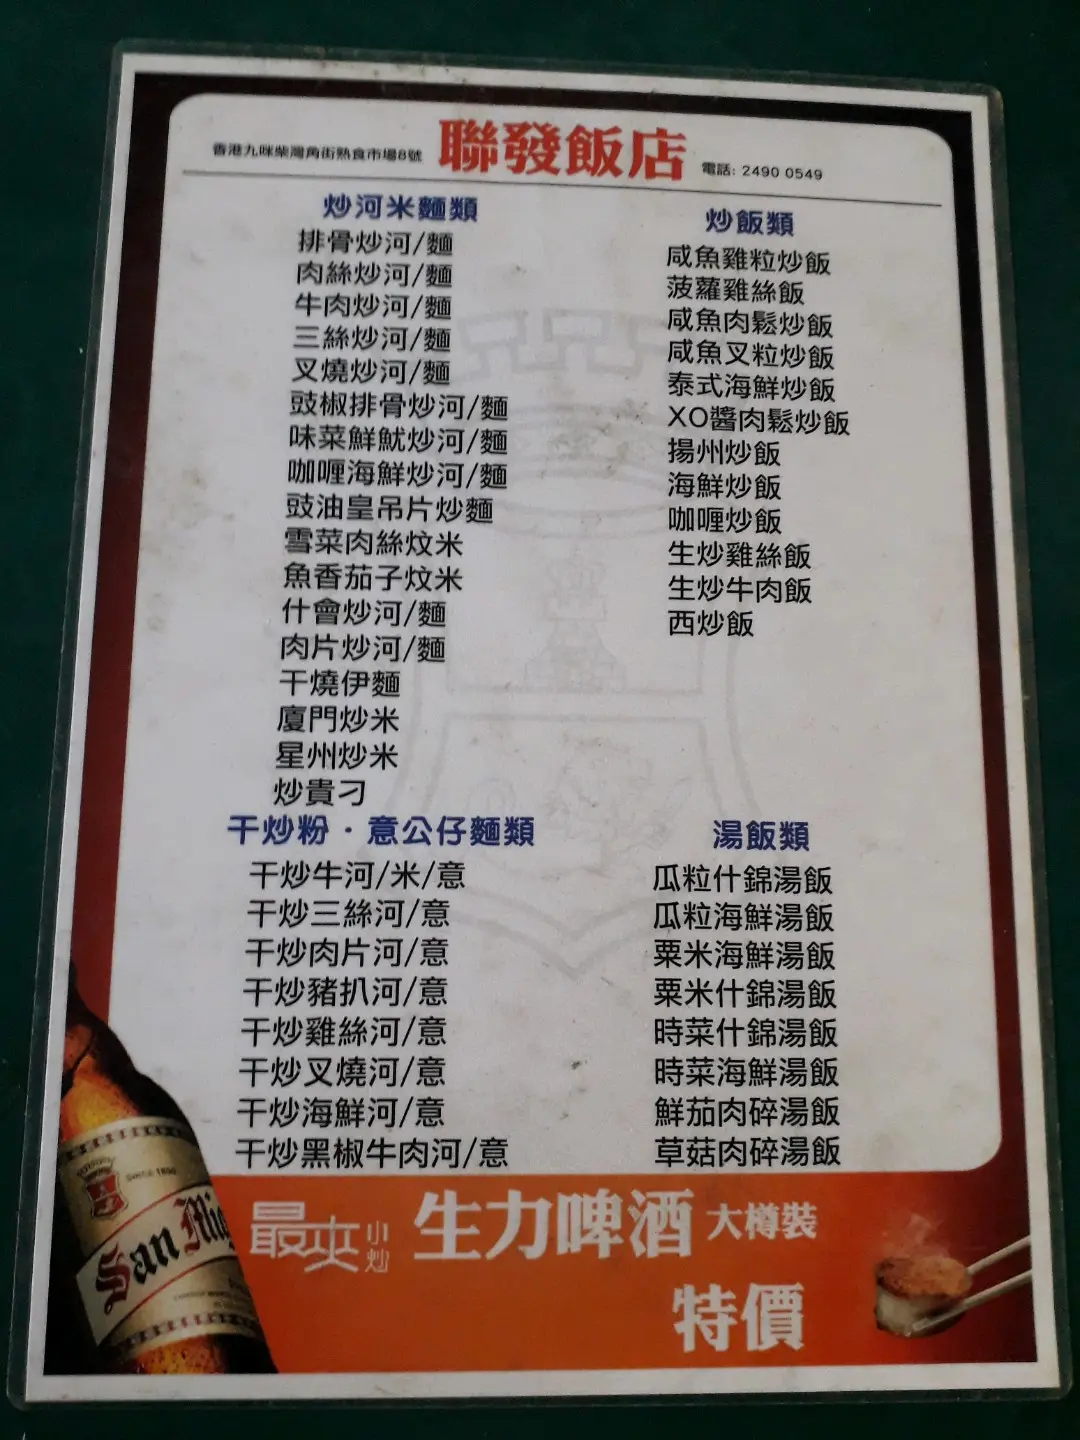 香港九咪柴灣角街熟食市場8號
聯發飯店
電話: 2490 0549
炒河米麵類
排骨炒河/麵
肉絲炒河/麵
牛肉炒河/麵
三絲炒河/麵
叉燒炒河/麵
豉椒排骨炒河/麵
味菜鮮魷炒河/麵
咖喱海鮮炒河/麵
豉油皇吊片炒麵
雪菜肉絲炆米
魚香茄子炆米
什會炒河/麵
肉片炒河/麵
干燒伊麵
廈門炒米
星州炒米
炒貴刁
炒飯類
咸魚雞粒炒飯
菠蘿雞絲飯
咸魚肉鬆炒飯
咸魚叉粒炒飯
泰式海鮮炒飯
XO醬肉鬆炒飯
揚州炒飯
海鮮炒飯
咖喱炒飯
生炒雞絲飯
生炒牛肉飯
西炒飯
干炒粉·意公仔麵類
干炒牛河/米/意
干炒三絲河/意
干炒肉片河/意
干炒豬扒河/意
干炒雞絲河/意
干炒叉燒河/意
干炒海鮮河/意
干炒黑椒牛肉河/意
湯飯類
瓜粒什錦湯飯
瓜粒海鮮湯飯
粟米海鮮湯飯
粟米什錦湯飯
時菜什錦湯飯
時菜海鮮湯飯
鮮茄肉碎湯飯
草菇肉碎湯飯
SINCE 1890
San Mig
最夾小炒
生力啤酒 大樽裝
特價